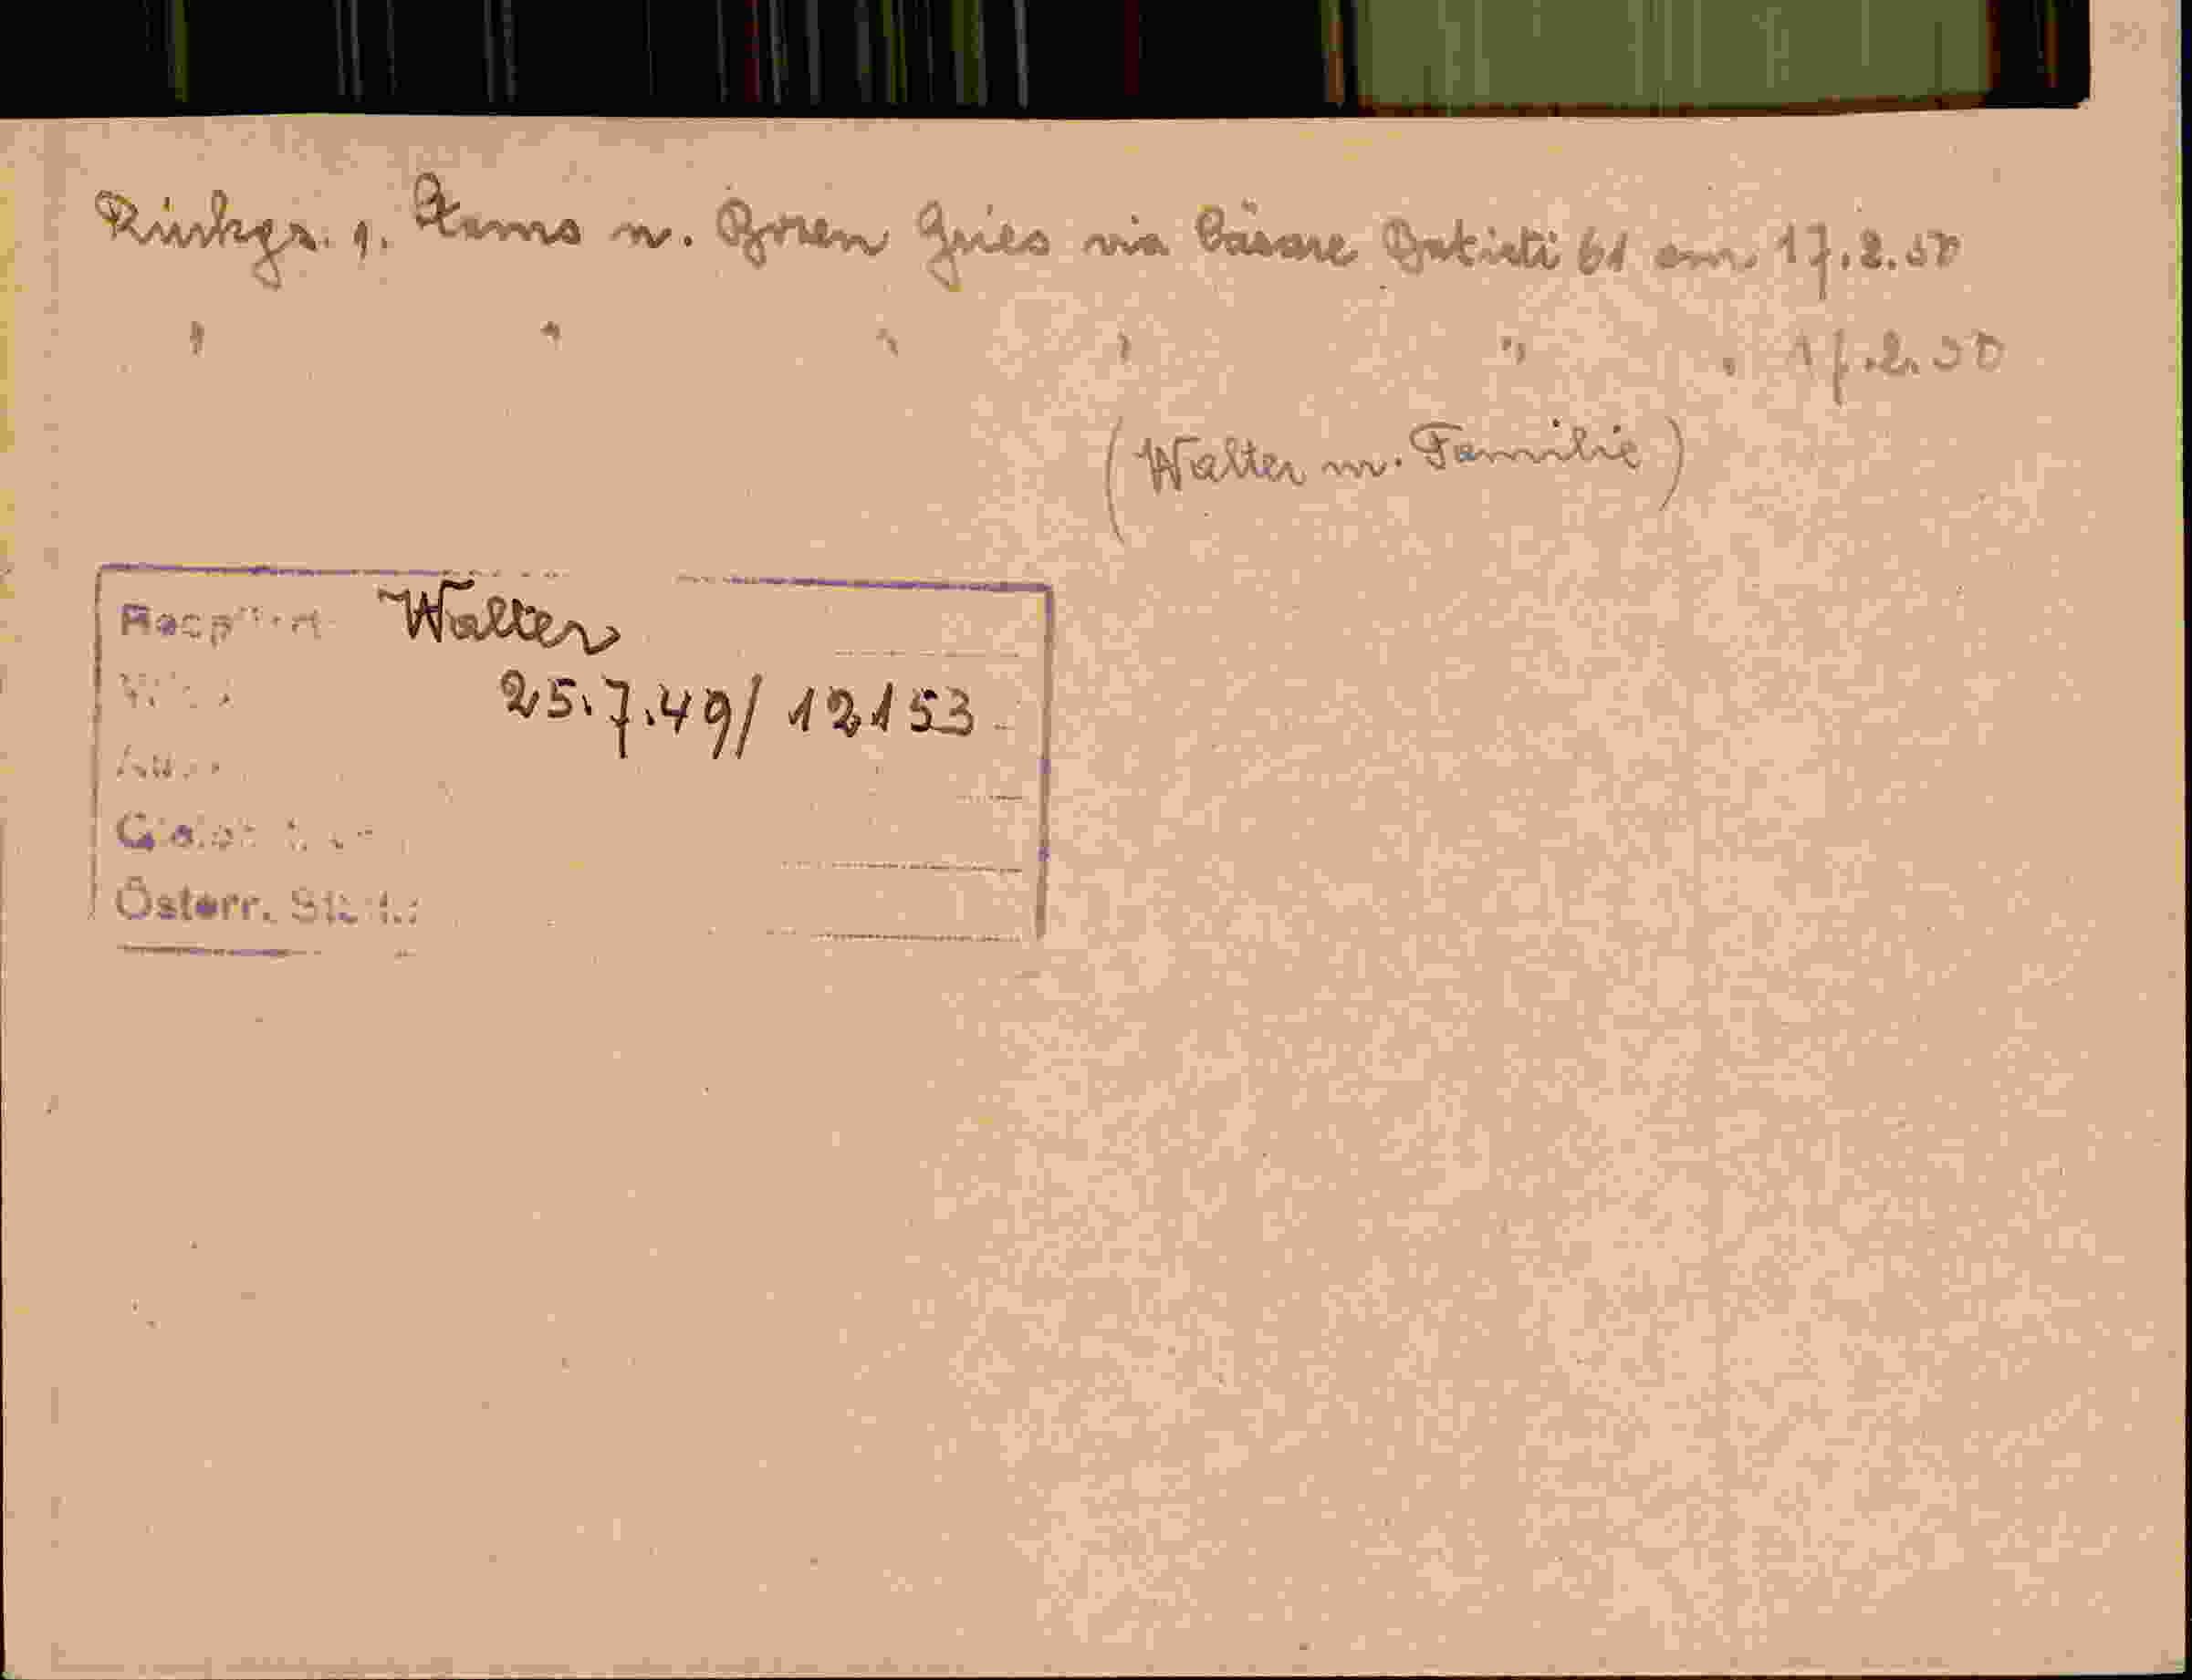 Rückgs. v. Stams n. Bozen Gries via Cäsare Batisti 61 am 17.2.50
" " " " " " 17.2.50
(Walter m. Familie)
Walter
25.7.49/ 12153
Österr.